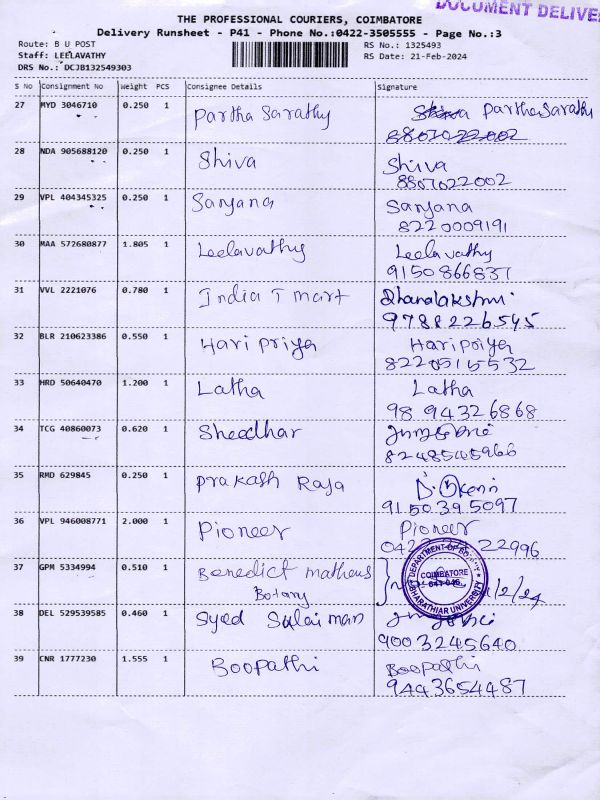 DOCUMENT DELIVE
THE PROFESSIONAL COURIERS, COIMBATORE
Delivery Runsheet - P41 - Phone No.:0422-3505555 - Page No.:3
Route: B U POST
RS No.: 1325493
Staff: LEELAVATHY
RS Date: 21-Feb-2024
DRS No.: DCJB132549303
S No Consignment No Weight PCS Consignee Details Signature
27 MYD 3046710 0.250 1 Partha Sarathy Parthasarathy
8807022002
28 NDA 905688120 0.250 1 Shiva Shiva
8807022002
29 VPL 404345325 0.250 1 Sanjana Sanjana
8220009191
30 MAA 572680877 1.805 1 Leelavathy Leelavathy
9150866837
31 VVL 2221076 0.780 1 India T mart Dhanalakshmi
9788226545
32 BLR 210623386 0.550 1 Hari Priya Haripriya
8220515532
33 HRD 50640470 1.200 1 Latha Latha
9894326868
34 TCG 40860073 0.620 1 Sheedhar
8248545966
35 RMD 629845 0.250 1 Prakash Raja
9150395097
36 VPL 946008771 2.000 1 Pioneer Pioneer
22996
37 GPM 5334994 0.510 1 Benedict matheus
Botany
DEPARTMENT OF BOTANY
COIMBATORE
641 046
BHARATHIAR UNIVERSITY
/2/24
38 DEL 529539585 0.460 1 Syed Sulaiman
9003245640
39 CNR 1777230 1.555 1 Boopathi Boopathi
9443654487